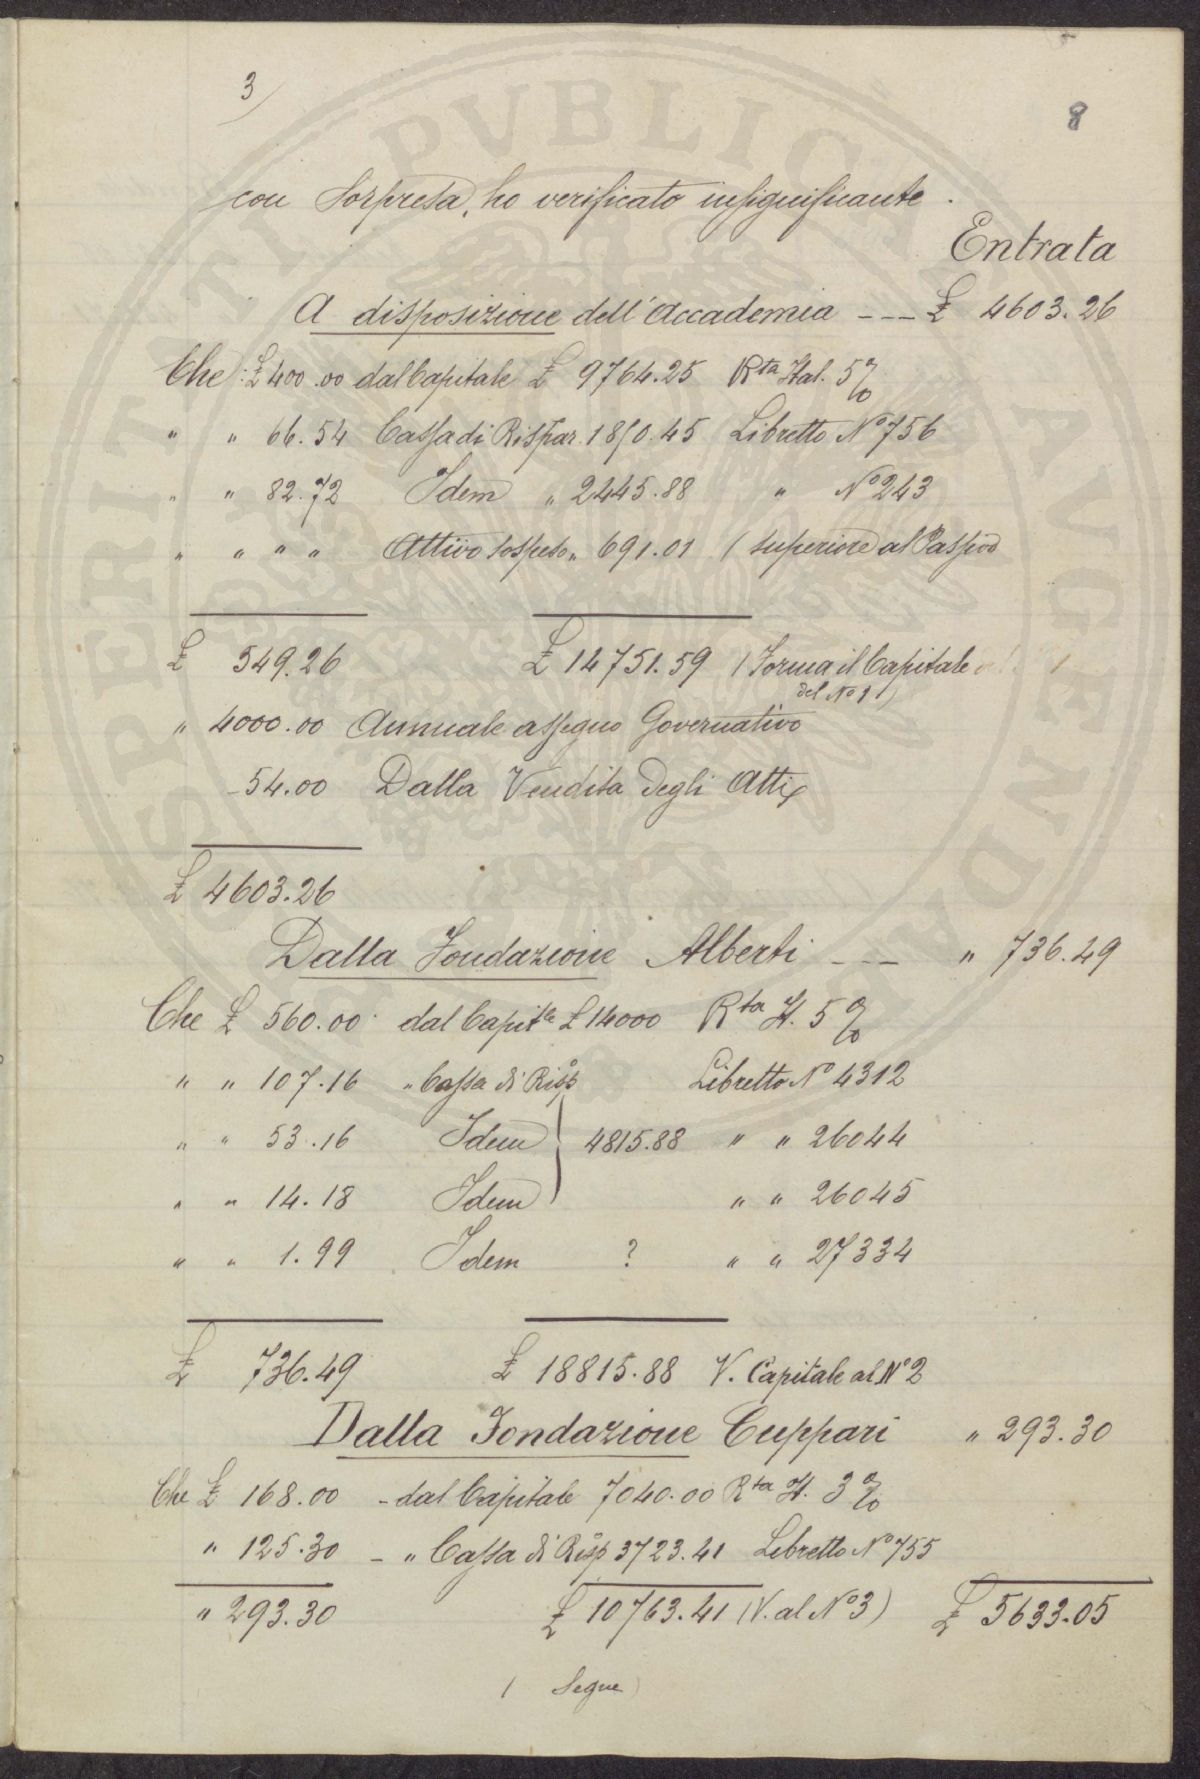 3
8
con sorpresa, ho verificato insignificante.
Entrata
A disposizione dell'Accademia --- £ 4603.26
Che: £ 400.00 dal Capitale £ 9764.25 Rta Ital. 5%
" " 66.54 Cassa di Rispar. 1850.45 Libretto No 756
" " 82.72 Idem " 2445.88 " No 243
" " " " Attivo sospeso " 691.01 (superiore al Passivo
£ 549.26 £ 14751.59 (Forma il Capitale
del No 1)
" 4000.00 Annuale assegno Governativo
- 54.00 Dalla Vendita degli Atti
£ 4603.26
Dalla Fondazione Alberti --- " 736.49
Che £ 560.00 dal Capitle £ 14000 Rta It. 5%
" " 107.16 " Cassa di Risp Libretto No 4312
" " 53.16 Idem } 4815.88 " " 26044
" " 14.18 Idem " " 26045
" " 1.99 Idem ? " " 27334
£ 736.49 £ 18815.88 V. Capitale al No 2
Dalla Fondazione Cuppari " 293.30
Che £ 168.00 - dal Capitale 7040.00 Rta It. 3%
" 125.30 - " Cassa di Risp 3723.41 Libretto No 755
" 293.30 £ 10763.41 (V. al No 3) £ 5633.05
( Segue )
PERITATI PVBLICAE AVGENDAE